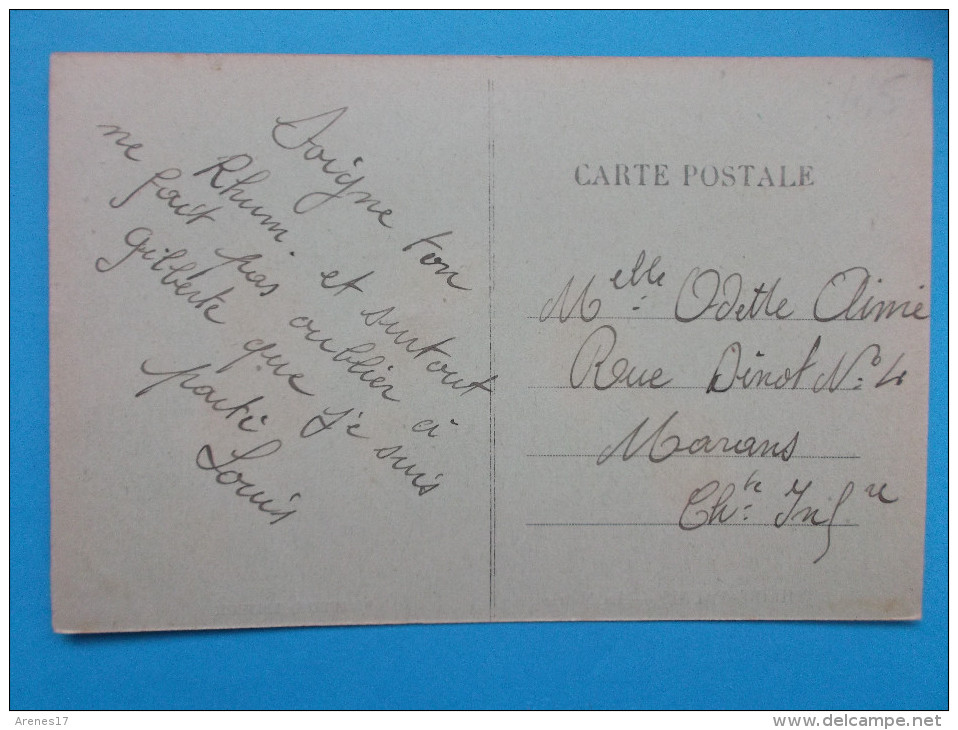 Soigne ton
Rhum. et surtout
ne fait pas oublier a
Gilberte que je suis
parti
Louis
CARTE POSTALE
Melle Odette Aimé
Rue Dinot N° 4
Marans
Chte Infre
Arenes17
www.delcampe.net